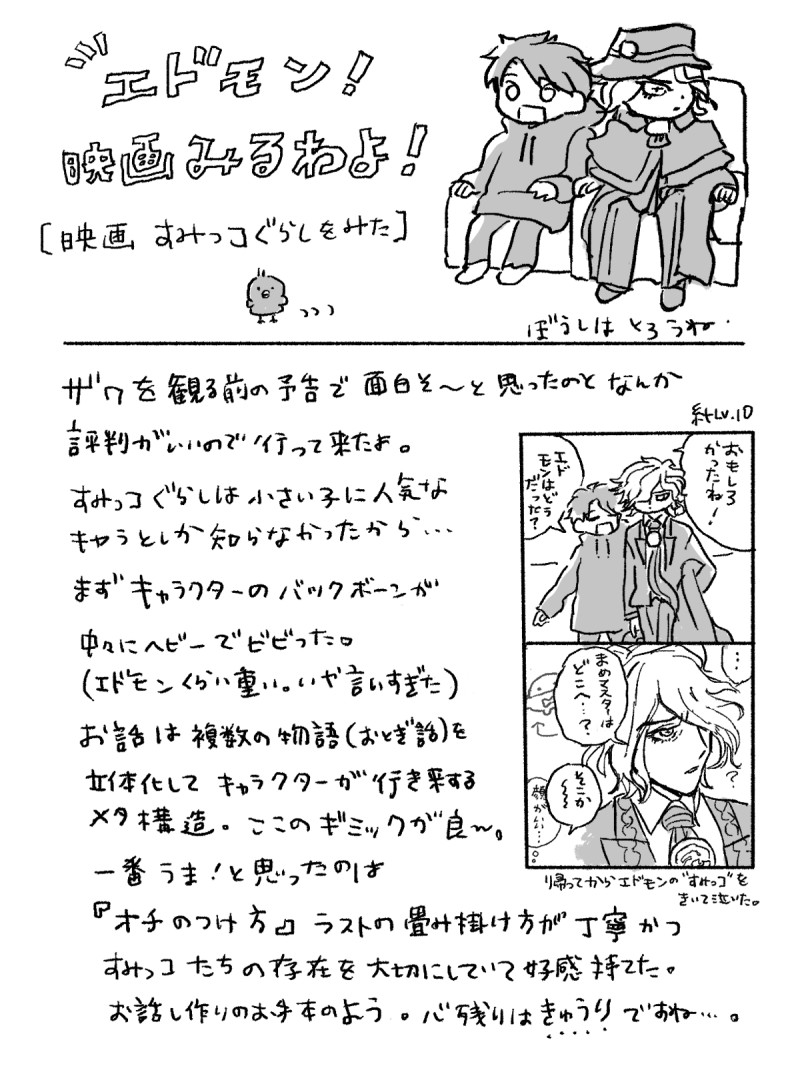 エドモン！
映画みるわよ！
[映画 すみっコぐらしをみた]
ぼうしは とろうね.
ザワを観る前の予告で面白そ〜と思ったのとなんか
評判がいいので行って来たよ。
すみっコぐらしは小さい子に人気な
キャラとしか知らなかったから…
まずキャラクターのバックボーンが
中々にヘビーでビビった。
(エドモンくらい重い。いや言いすぎた)
お話は複数の物語(おとぎ話)を
立体化してキャラクターが行き来する
メタ構造。ここのギミックが良〜。
一番うま！と思ったのは
『オチのつけ方』ラストの畳み掛け方が丁寧かつ
すみっコたちの存在を大切にしていて好感持てた。
お話し作りのお手本のよう。心残りはきゅうりですね…。
絆Lv.10
おもしろ
かったね！
エド
モンはどう
だった？
…
まめマスターは
どこへ…？
そこか
〜〜〜
？
顔がいい…。
帰ってからエドモンの"すみっコ"を
きいて泣いた。